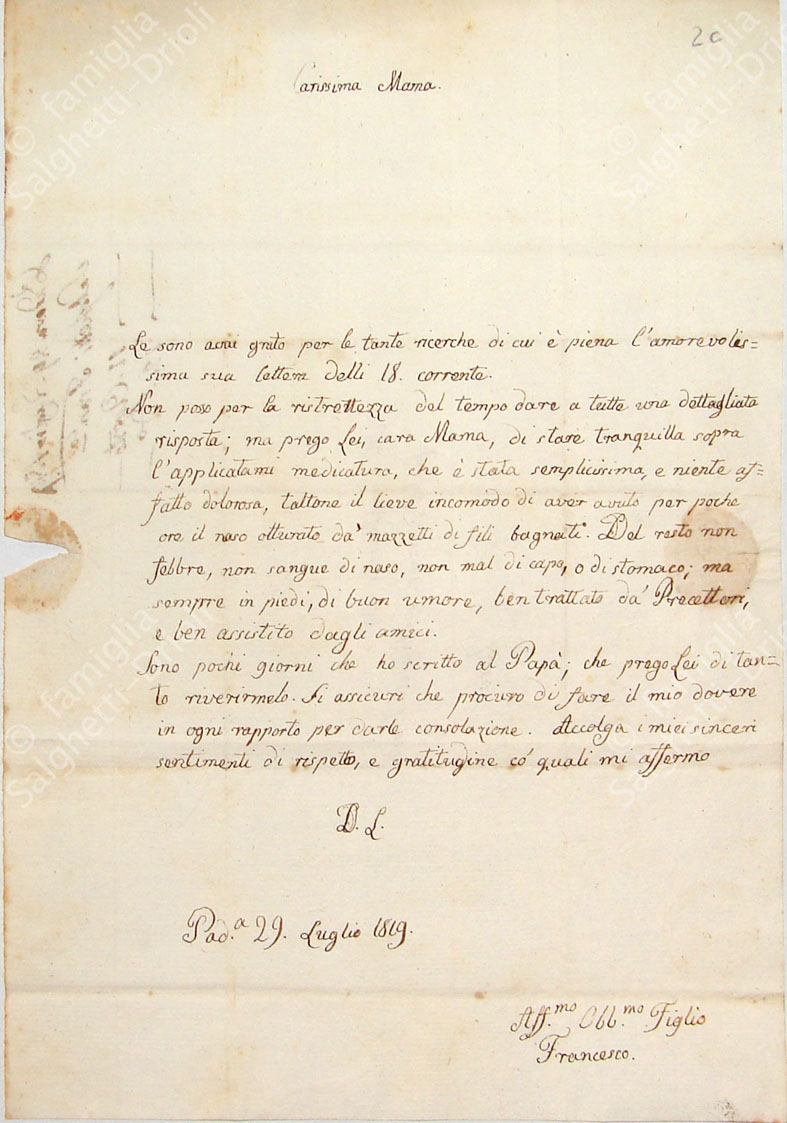 2c
Carissima Mama.
Le sono assai grato per le tante ricerche di cui è piena l'amorevolis=
sima sua lettera delli 18. corrente.
Non posso per la ristrettezza del tempo dare a tutte una dettagliata
risposta; ma prego Lei, cara Mama, di stare tranquilla sopra
l'applicatami medicatura, che è stata semplicissima, e niente af=
fatto dolorosa, taltone il lieve incomodo di aver avuto per poche
ore il naso otturato da' mazzetti di fili bagnati. Del resto non
febbre, non sangue di naso, non mal di capo, o di stomaco; ma
sempre in piedi, di buon umore, ben trattato da' Precettori,
e ben assistito dagli amici.
Sono pochi giorni che ho scritto al Papà; che prego Lei di tan=
to riverirmelo. Si assicuri che procuro di fare il mio dovere
in ogni rapporto per darle consolazione. Accolga i miei sinceri
sentimenti di rispetto, e gratitudine co' quali mi affermo
D. L.
Pad.a 29. Luglio 1819.
Aff.mo Obb.mo Figlio
Francesco.
© famiglia
Salghetti-Drioli
© famiglia
Salghetti-Drioli
© famiglia
Salghetti-Drioli
© famiglia
Salghetti-Drioli